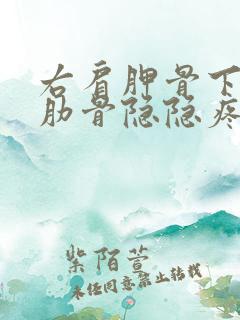 右肩胛骨下
肋骨隐隐疼
紫陌萱
未经同意禁止转载